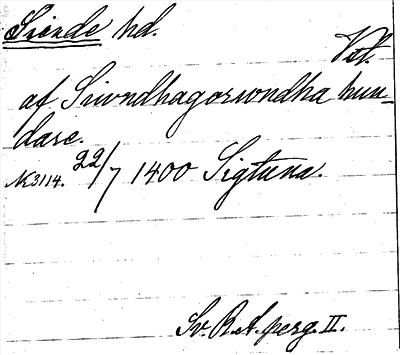 Siende hd.
Vstm.
af Siwndhagoriwndha hun-
dare.
N. 3114. 22/7 1400 Sigtuna.
Sv. R. A. perg. II.